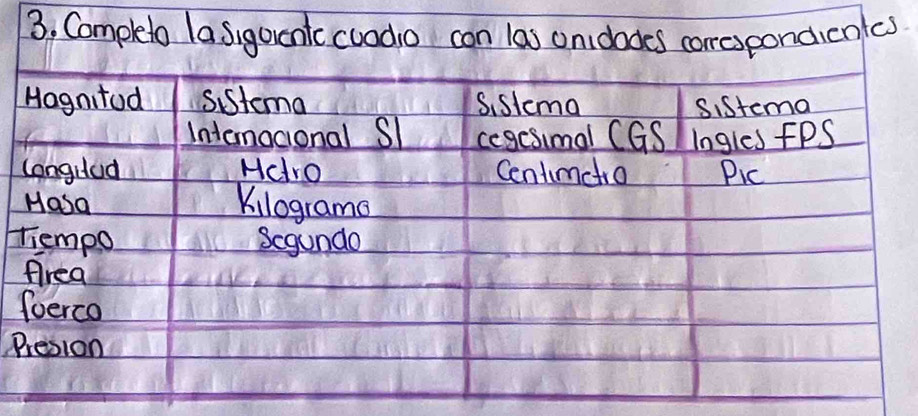 3. Completa la siguiente cuadro con las unidades correspondientes.
Magnitud Sistema Sistema Sistema
Internacional SI cegesimal CGS Ingles FPS
Longitud Metro Centimetro Pie
Masa Kilogramo
Tiempo Segundo
Area
fuerza
Presion